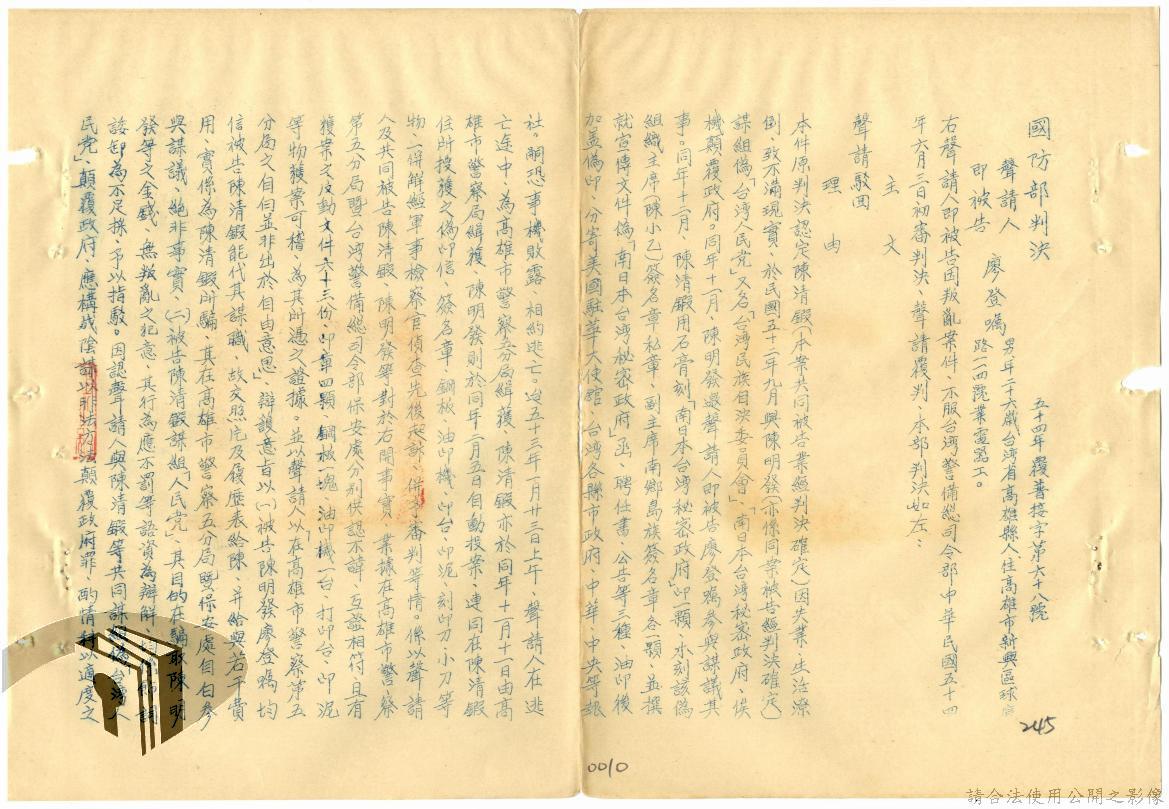 國防部判決
五十四年覆普接字第六十八號
聲請人
即被告 廖登囑 男年二十六歲台湾省高雄縣人住高雄市新興區球庭
路一四號業電器工。
右聲請人即被告因叛亂案件、不服台湾警備總司令部、中華民國五十四
年六月三日、初審判決、聲請覆判、本部判決如左：
主文
聲請駁回
理由
本件原判決認定陳清鍛（本案共同被告業經判決確定）因失業、生活潦
倒、致不滿現實、於民國五十二年九月與陳明發（亦係同案被告經判決確定）
謀組偽「台湾人民党」又名「台湾民族自決委員會」、「南日本台湾秘密政府、俟
機顛覆政府。同年十一月、陳明發邀聲請人即被告廖登囑參與謀議其
事。同年十二月、陳清鍛用石膏刻「南日本台湾秘密政府」印一顆、木刻該偽
組織主席（陳小乙）簽名章私章、副主席南鄉島族簽名章各一顆、並撰
就宣傳文件偽「南日本台湾秘密政府」函、聘任書、公告等三種、油印後
加蓋偽印、分寄美國駐華大使館、台湾各縣市政府、中華、中央等報
社。嗣恐事機敗露、相約逃亡。迨五十三年一月廿三日上午、聲請人在逃
亡途中、為高雄市警察五分局緝獲、陳清鍛亦於同年十一月十一日由高
雄市警察局緝獲、陳明發則於同年二月五日自動投案、連同在陳清鍛
住所搜獲之偽印信、簽名章、鋼板、油印機、印台、印泥、刻印刀、小刀等
物、一併解經軍事檢察官偵查先後起訴、併予審判等情。係以聲請
人及共同被告陳清鍛、陳明發等對於右開事實、業據在高雄市警察
第五分局暨台湾警備總司令部保安處分別供認不諱、互證相符且有
獲案之反動文件六十三份、印章四顆、鋼板一塊、油印機一台、打印台、印泥
等物獲案可稽、為其所憑之證據。並以聲請人以「在高雄市警察第五
分局之自白並非出於自由意思」、辯護意旨以（一）被告陳明發廖登囑均
信被告陳清鍛能代其謀職、故交照片及履歷表給陳、并給與若干費
用、實係為陳清鍛所騙、其在高雄市警察五分局暨保安處自白參
與謀議、絕非事實、（二）被告陳清鍛謀組「人民党」、其目的在騙取陳明
發等之金錢、無叛亂之犯意、其行為應不罰等語資為辯解、均係飾詞
諉卸為不足採、予以指駁。因認聲請人與陳清鍛等共同謀組偽「台湾人
民党」、顛覆政府、應構成陰謀以非法方法顛覆政府罪、酌情科以適度之
245
0010
請合法使用公開之影像